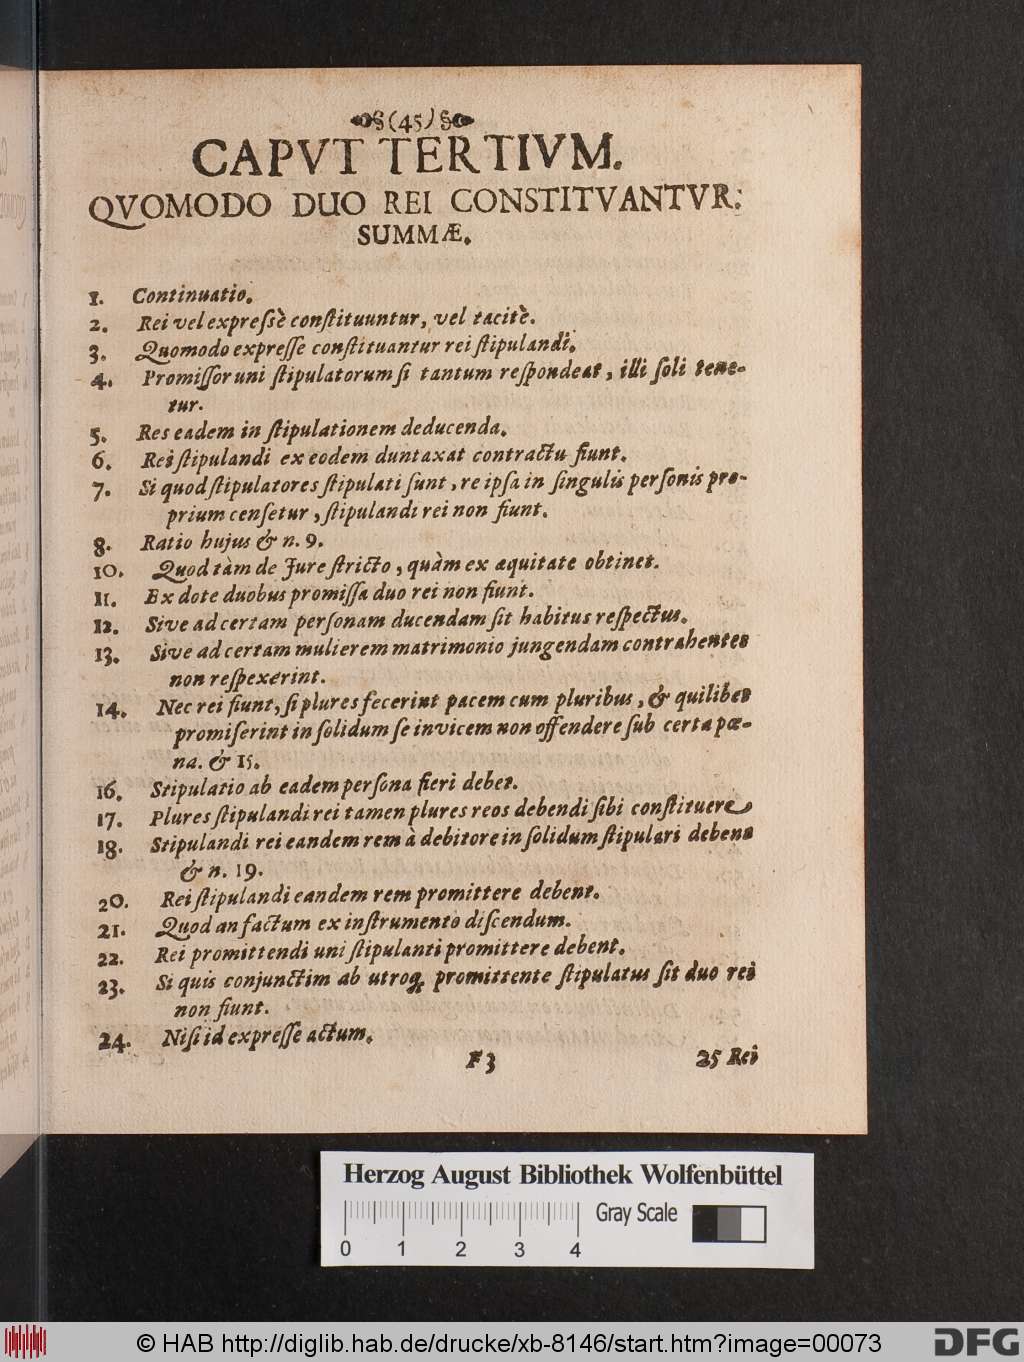 (45)
CAPVT TERTIVM.
QVOMODO DUO REI CONSTITVANTVR:
SUMMÆ.
1. Continuatio.
2. Rei vel expreſsè conſtituuntur, vel tacitè.
3. Quomodo expreſſe conſtituantur rei ſtipulandi.
4. Promiſſor uni ſtipulatorum ſi tantum reſpondeat, illi ſoli tene-
tur.
5. Res eadem in ſtipulationem deducenda.
6. Rei ſtipulandi ex eodem duntaxat contractu fiunt.
7. Si quod ſtipulatores ſtipulati ſunt, re ipſa in ſingulis perſonis pro-
prium cenſetur, ſtipulandi rei non fiunt.
8. Ratio hujus & n. 9.
10. Quod tàm de Jure ſtricto, quàm ex æquitate obtinet.
11. Ex dote duobus promiſſa duo rei non fiunt.
12. Sive ad certam perſonam ducendam ſit habitus reſpectus.
13. Sive ad certam mulierem matrimonio jungendam contrahentes
non reſpexerint.
14. Nec rei fiunt, ſi plures fecerint pacem cum pluribus, & quilibet
promiſerint in ſolidum ſe invicem non offendere ſub certa pœ-
na. & 15.
16. Stipulatio ab eadem perſona fieri debet.
17. Plures ſtipulandi rei tamen plures reos debendi ſibi conſtituere
18. Stipulandi rei eandem rem à debitore in ſolidum ſtipulari debent
& n. 19.
20. Rei ſtipulandi eandem rem promittere debent.
21. Quod an factum ex inſtrumento diſcendum.
22. Rei promittendi uni ſtipulanti promittere debent.
23. Si quis conjunctim ab utroq; promittente ſtipulatus ſit duo rei
non fiunt.
24. Niſi id expreſſe actum.
F 3 25 Rei
Herzog August Bibliothek Wolfenbüttel
Gray Scale
0 1 2 3 4
© HAB http://diglib.hab.de/drucke/xb-8146/start.htm?image=00073
DFG